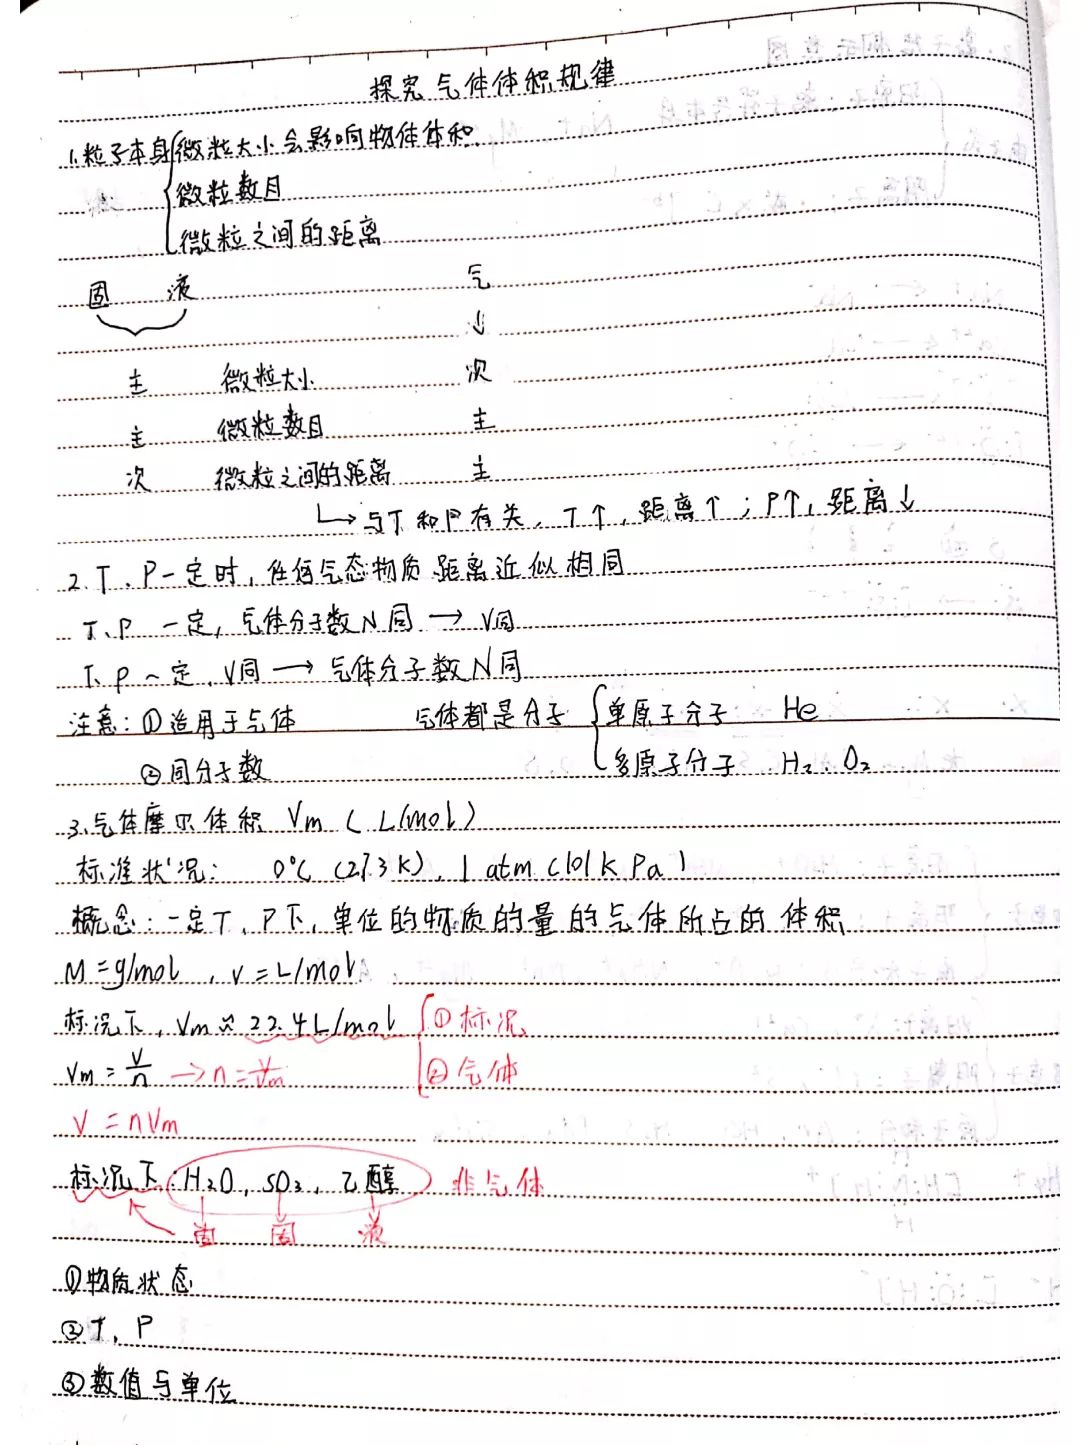 探究气体体积规律
1.粒子本身{微粒大小会影响物体体积.
微粒数目
微粒之间的距离
固 液 气
↓
主 微粒大小 次
主 微粒数目 主
次 微粒之间的距离 主
↳与T和P有关,T↑,距离↑;P↑,距离↓
2.T、P一定时,任何气态物质距离近似相同
T、P 一定,气体分子数N同→V同
T、P一定,V同→气体分子数N同
注意:①适用于气体 气体都是分子{单原子分子 He
②同分子数 多原子分子 H₂、O₂
3.气体摩尔体积 Vm (L/mol)
标准状况: 0℃ (273K),1 atm (101KPa)
概念:一定T、P下,单位的物质的量的气体所占的体积
M=g/mol,V=L/mol
标况下,Vm≈22.4L/mol {①标况
Vm=V/n →n=V/Vm ②气体
V=nVm
标况下:H₂O、SO₃、乙醇 非气体
固 固 液
①物质状态
②T、P
③数值与单位